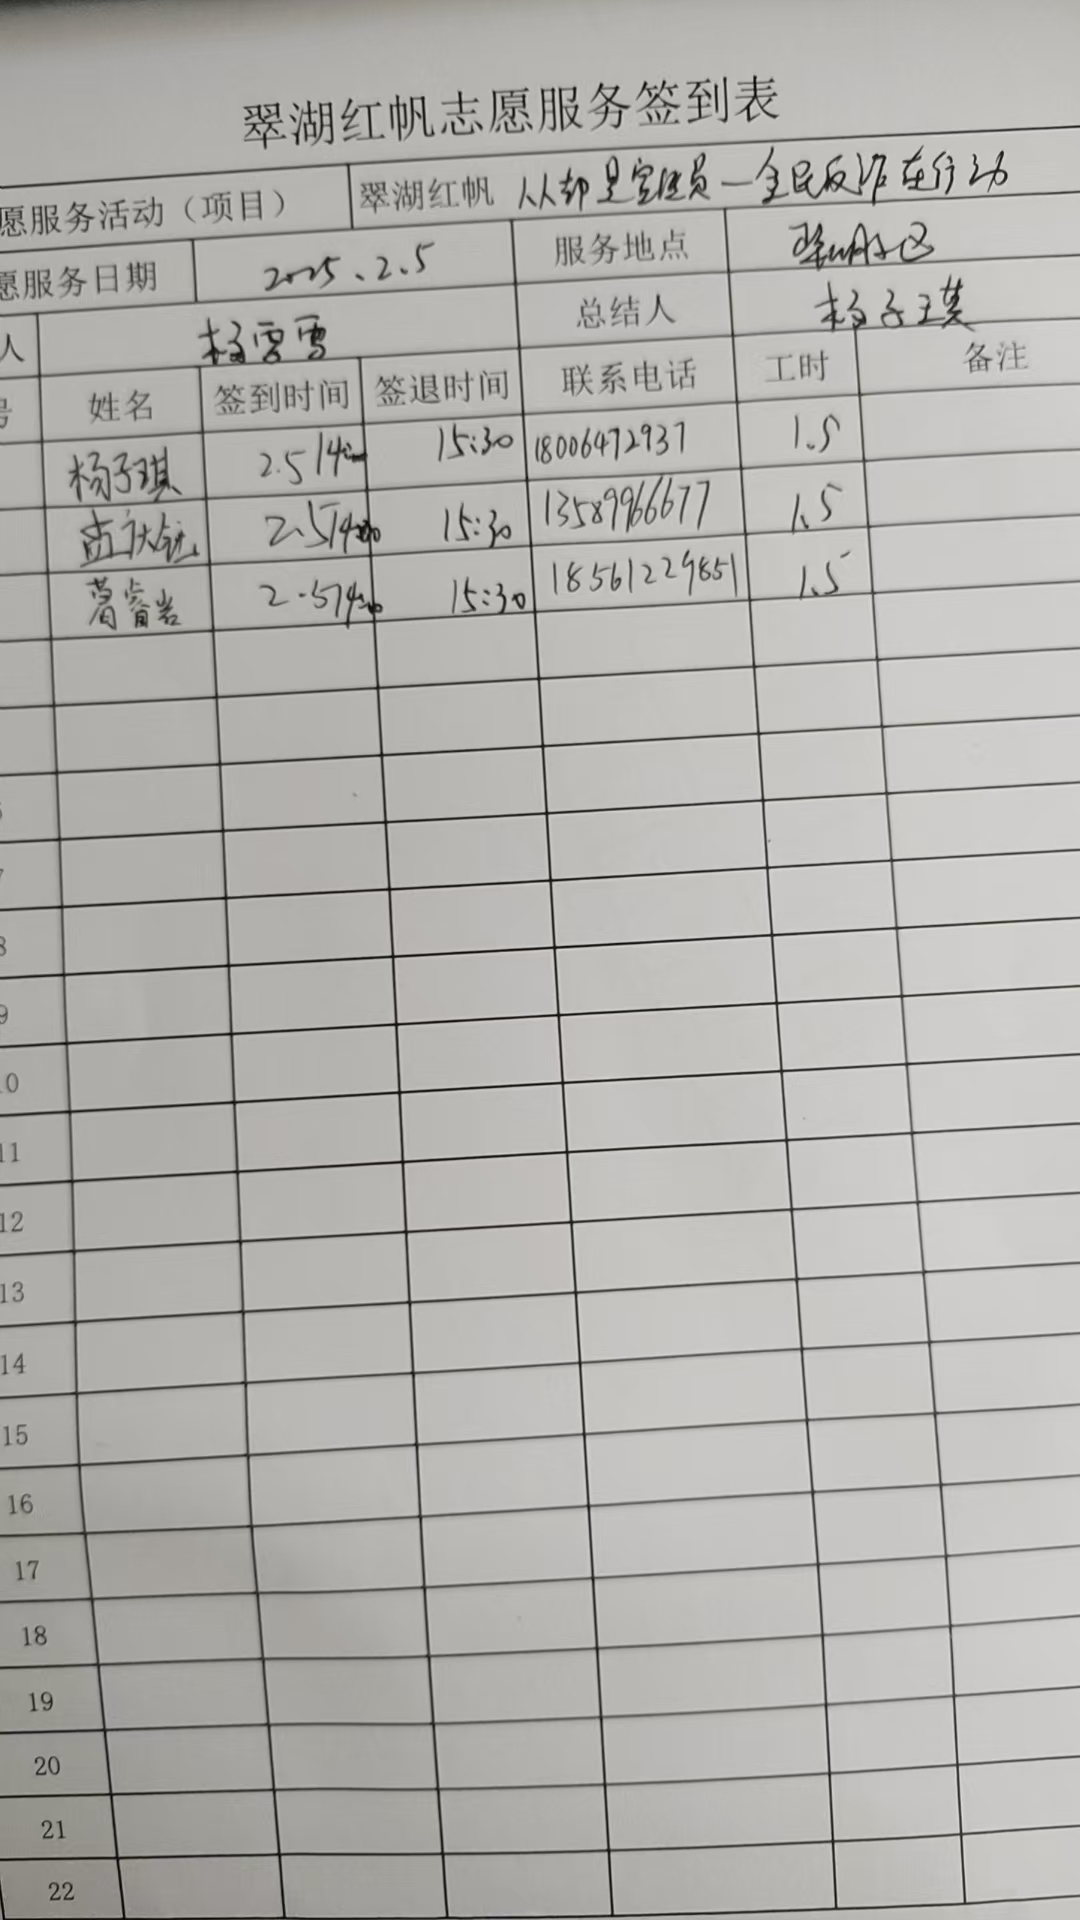 翠湖红帆志愿服务签到表
愿服务活动（项目） 翠湖红帆 人人都是宣传员—全民反诈在行动
愿服务日期 2025.2.5 服务地点 翠湖小区
人 杨雪雪 总结人 杨子琪
号 姓名 签到时间 签退时间 联系电话 工时 备注
杨子琪 2.5 14:00 15:30 18006472937 1.5
2.5 14:00 15:30 13589966677 1.5
2.5 14:00 15:30 18561229851 1.5
6
7
8
9
10
11
12
13
14
15
16
17
18
19
20
21
22